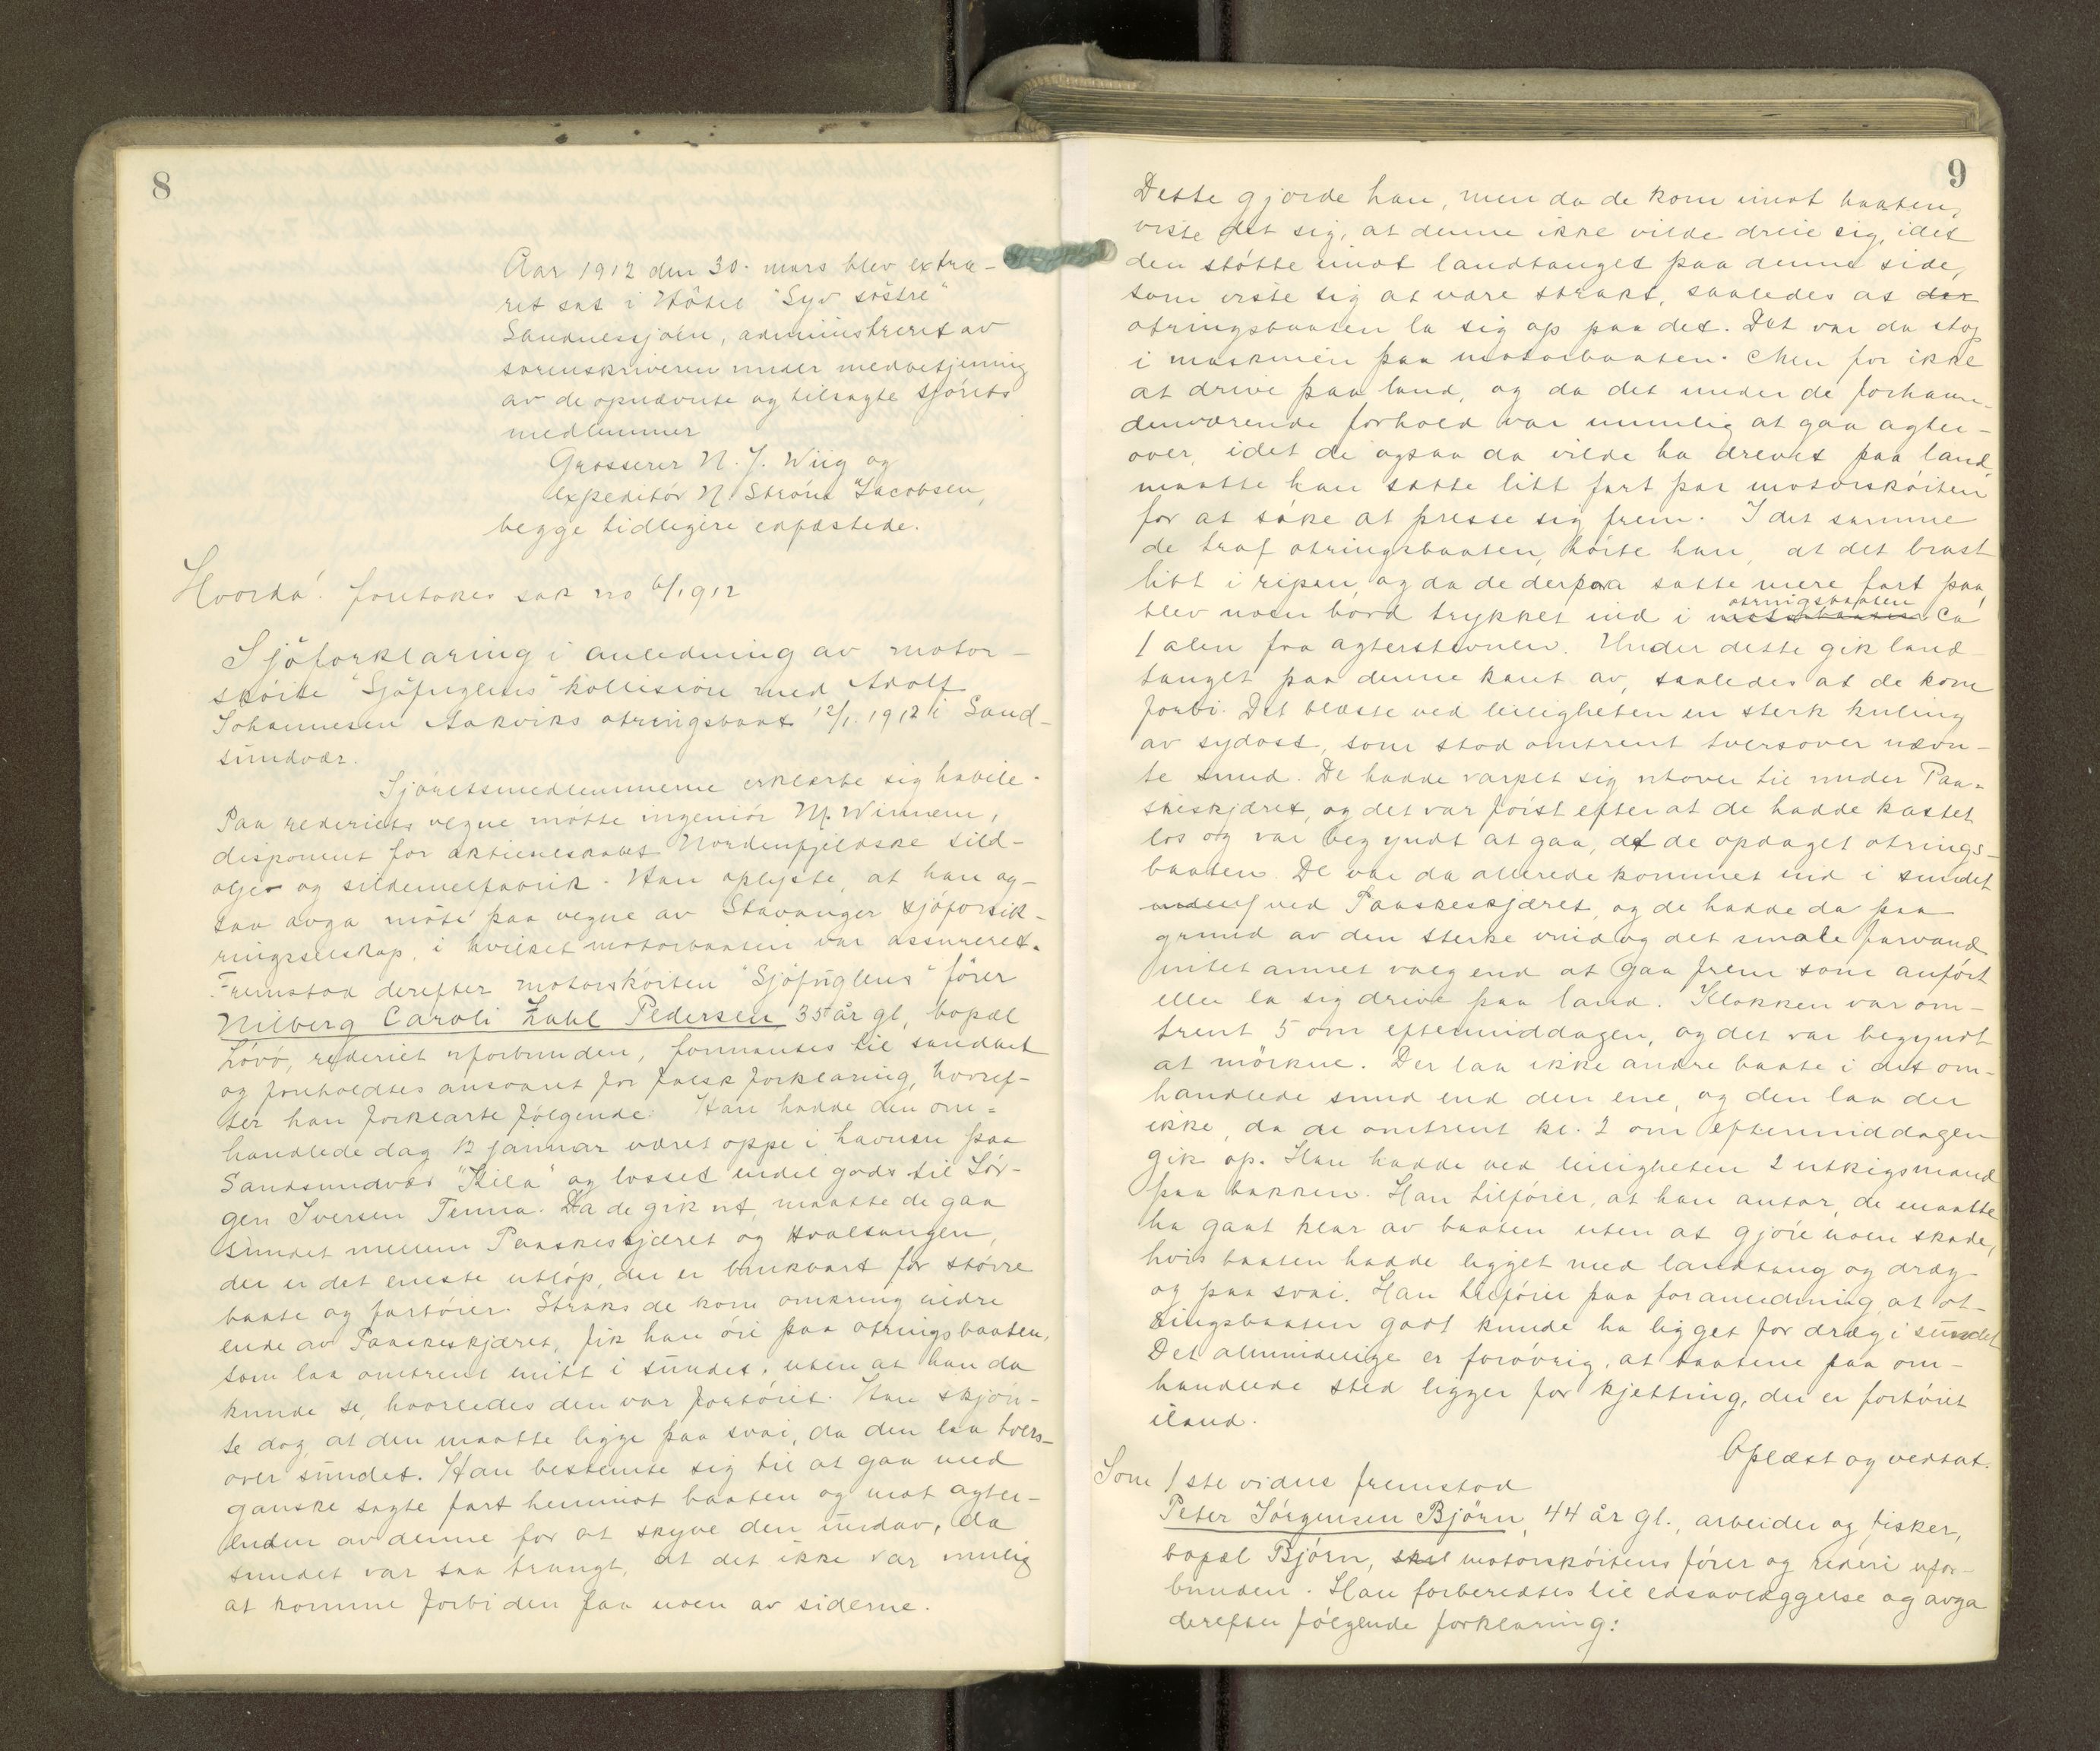 8
Aar 1912 den 30. mars blev extra-
ret sat i Hôtel "Syv söstre"
Sandnessjøen, administreret av
sorenskriveren under medbetjening
av de opnævnte og tilsagte sjörets
medlemmer
Grosserer N. J. Wiig og
expeditör N. Ström Jacobsen,
begge tidligere edfæstede.
Hvorda! foretokes sak no 6/1912
Sjöforklaring i anledning av motor-
sköite "Sjöfuglens" kollision med Adolf
Johannesen Aakviks otringsbaat 12/1. 1912 i Sand-
sundvær.
Sjöretsmedlemmerne erklærte sig habile.
Paa rederiets vegne mötte ingeniör M. Winnem,
disponent for aktieselskabet Nordenfjeldske sild-
olje- og sildemelfabrik. Han oplyste, at han og-
saa avga möte paa vegne av Stavanger sjöforsik-
ringsselskap, i hvilket motorbaaten var assureret.
Fremstod derefter motorsköiten "Sjöfuglens" förer
Nilberg Caroli Zahl Pedersen 35 år gl, bopæl
Lövö, rederiet uforbunden, formantes til sandhet
og foreholdtes ansvaret for falsk forklaring, hvoref-
ter han forklarte følgende: Han hadde den om-
handlede dag 12 januar været oppe i havnen paa
Sandsundvær "Kila" og losset endel gods til Jör-
gen Iversen Tenna. Da de gik ut, maatte de gaa
sundet mellem Paaskeskjæret og Hvaltangen,
der er det eneste utlöp, der er brukbart for större
baate og fartöier. Straks de kom omkring nedre
ende av Paaskeskjæret, fik han öie paa otringsbaaten,
som laa omtrent midt i sundet, uten at han da
kunde se, hvorledes den var fortöiet. Han skjön-
te dog at den maatte ligge paa svai, da den laa tvers-
over sundet. Han bestemte sig til at gaa med
ganske sagte fart henimot baaten og mot agter-
enden av denne for at skyve den undav, da
sundet var saa trangt, at det ikke var mulig
at komme forbi den paa noen av siderne.
9
Dette gjorde han, men da de kom imot baaten,
viste det sig, at denne ikke vilde dreie sig, idet
den stötte imot landtauget paa denne side,
som viste sig at være strakt, saaledes at der
otringsbaaten la sig op paa det. Det var da stop
i maskinen paa motorbaaten. Men for ikke
at drive paa land, og da det under de forhaan-
denværende forhold var umulig at gaa agter-
over, idet de ogsaa da vilde ha drevet paa land,
maatte han sætte litt fart paa motorsköiten
for at söke at presse sig frem. I det samme
de traf otringsbaaten, hörte han, at det brast
litt i ripen, og da de derpaa satte mere fart paa,
blev noen bord trykket ind i motorbaaten otringsbaaten ca
1 alen fra agterstevnen. Under dette gik land-
tauget paa denne kant av, saaledes at de kom
forbi. Det blæste ved leiligheten en sterk kuling
av sydost, som stod omtrent tversover nævn-
te sund. De hadde varpet sig utover til under Paa-
skeskjæret, og det var först efter at de hadde kastet
los og var begyndt at gaa, at de opdaget otrings-
baaten. De var da allerede kommet ind i sundet
ved Paaskeskjæret, og de hadde da paa
grund av den sterke vind og det smale farvand
intet annet valg end at gaa frem som anfört
eller la sig drive paa land. Klokken var om-
trent 5 om eftermiddagen, og det var begyndt
at mörkne. Der laa ikke andre baate i det om-
handlede sund end den ene, og den laa der
ikke, da de omtrent kl. 2 om eftermiddagen
gik op. Han hadde ved leiligheten 2 utkigsmand
paa bakken. Han tilföier, at han antar, de maatte
ha gaat klar av baaten uten at gjöre noen skade,
hvis baaten hadde ligget med landtaug og dræg
og paa svai. Han tilföier paa foranledning, at ot-
ringsbaaten godt kunde ha ligget for dræg i sundet
Det almindelige er forövrig, at baatene paa om-
handlede sted ligger for kjetting, der er fortöiet
iland.
Oplæst og vedtat.
Som 1ste vidne fremstod
Peter Jörgensen Björn, 44 år gl., arbeider og fisker,
bopæl Björn, skul motorsköitens förer og rederi ufor-
bunden. Han forberedtes til edsavlæggelse og avga
derefter fölgende forklaring: